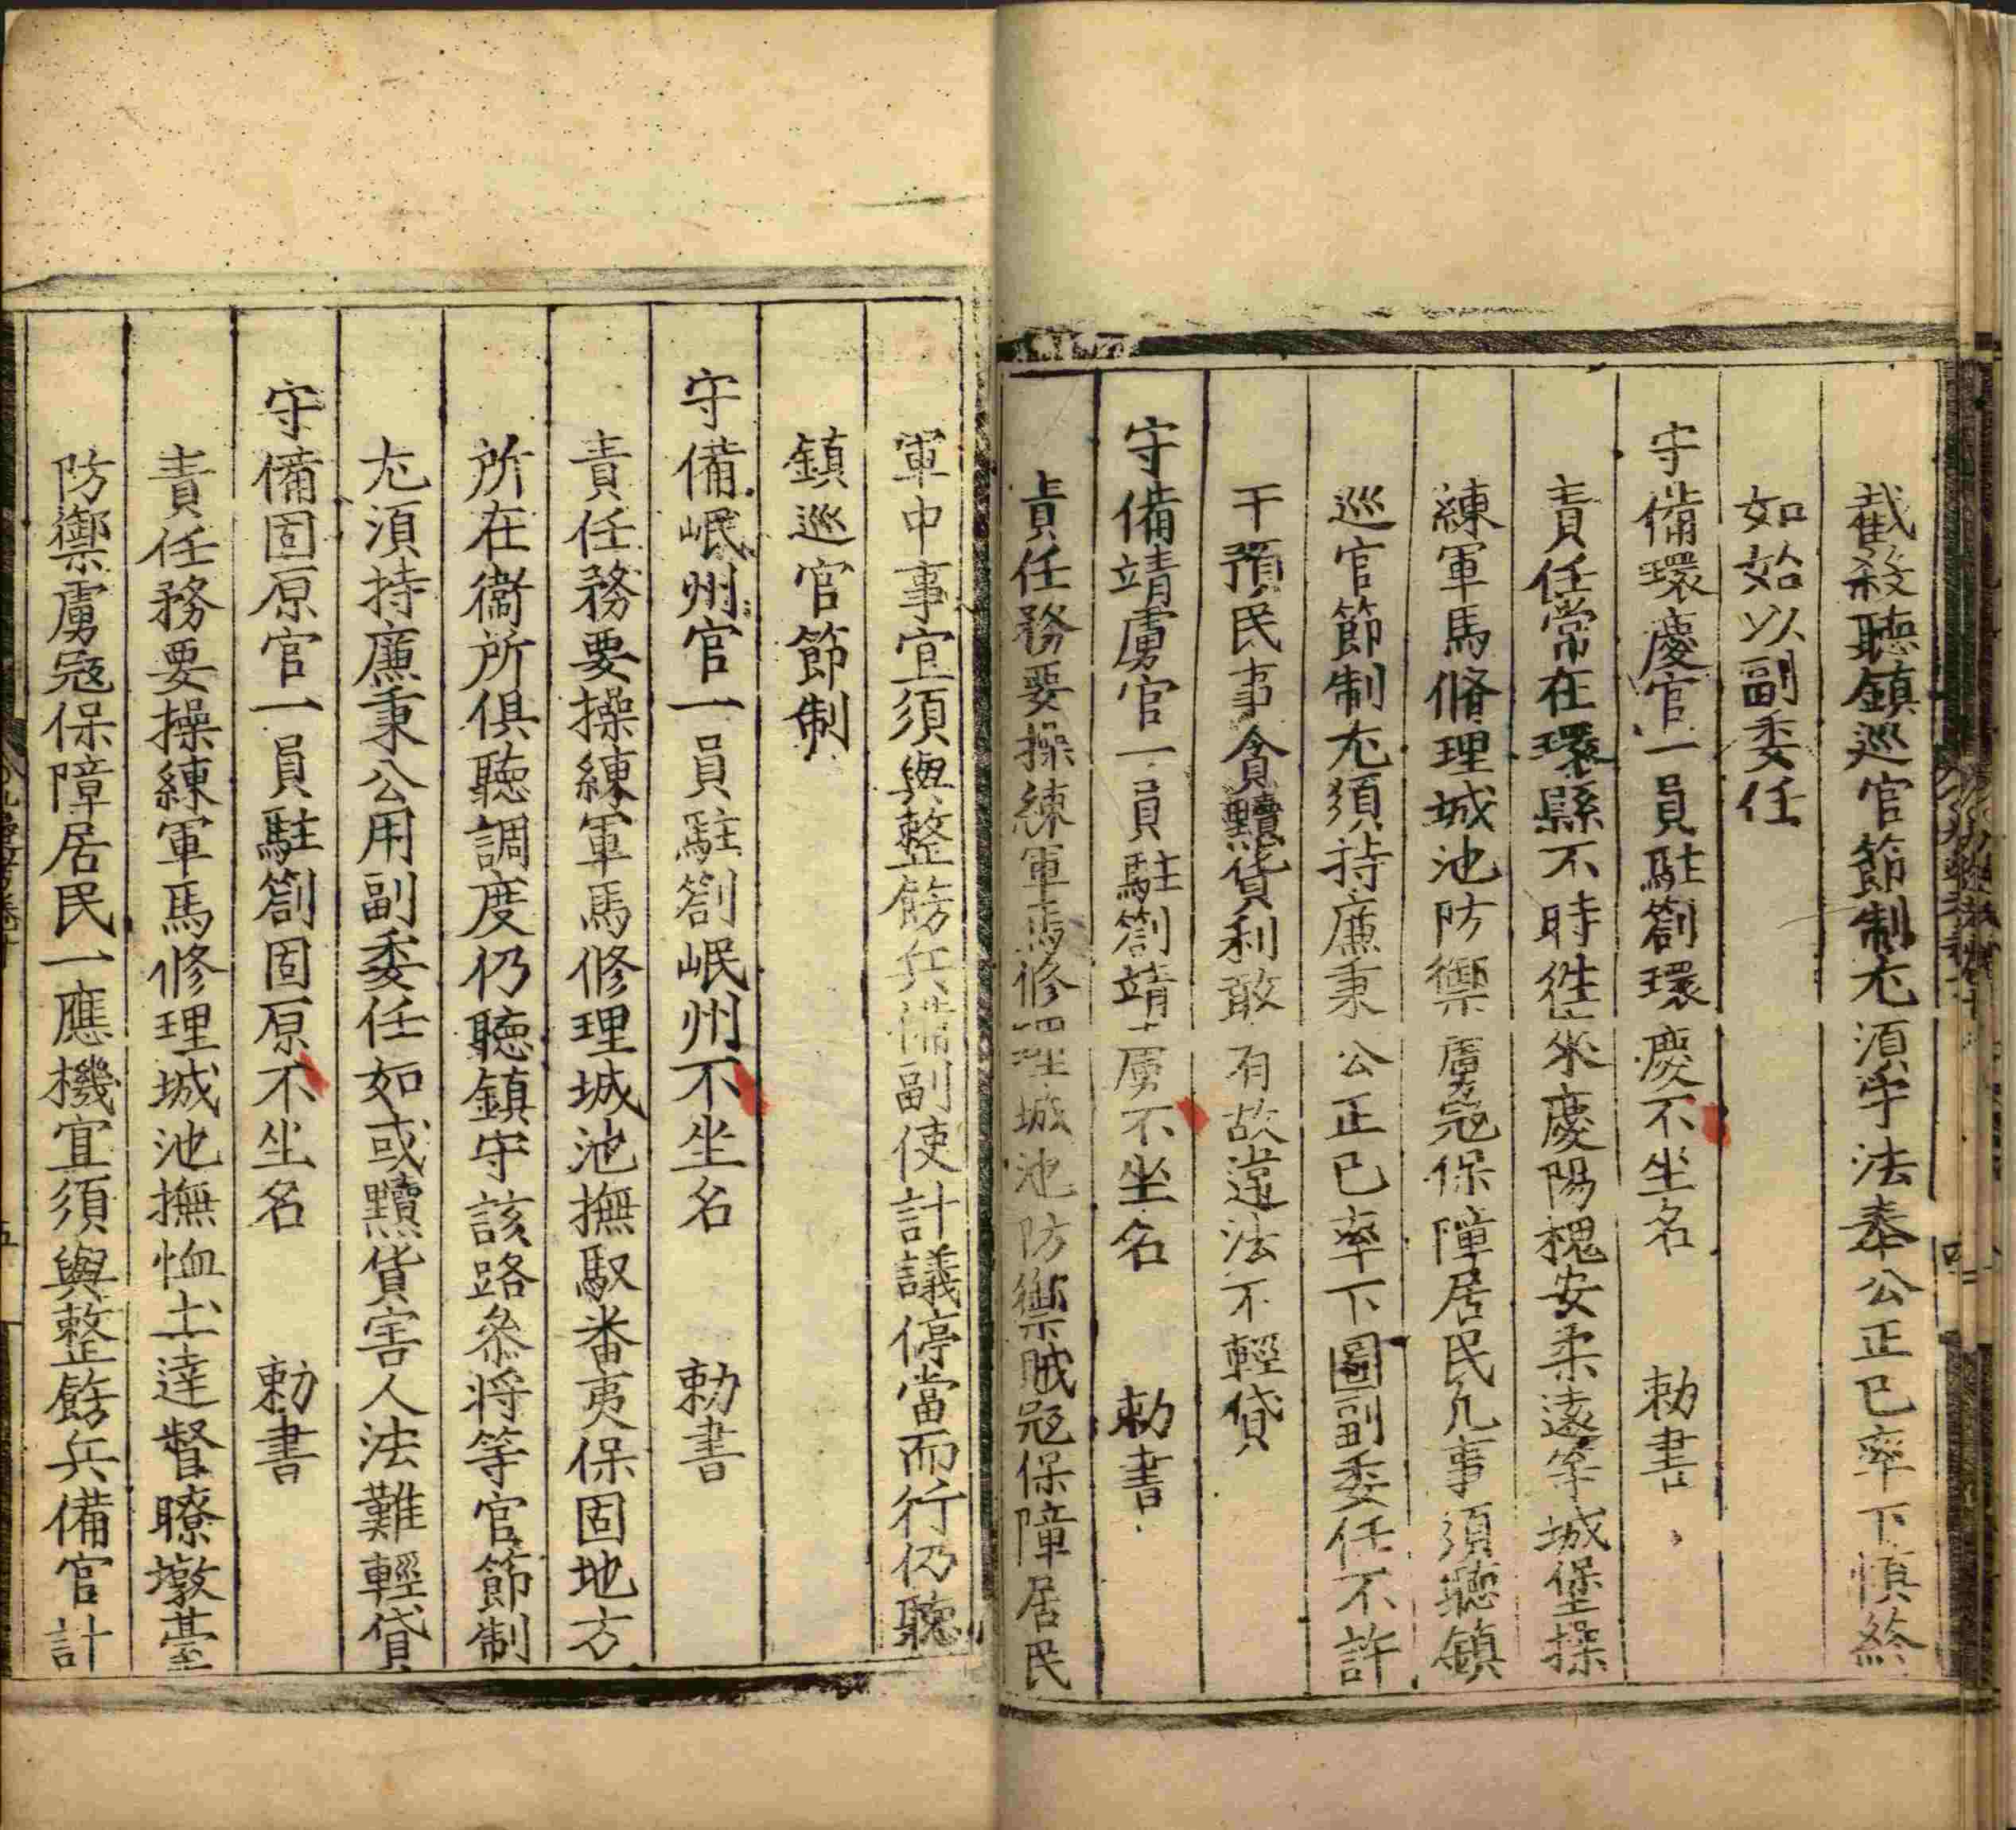 截殺聽鎮巡官節制尤須守法奉公正已率下慎終
如始以副委任
守備環慶官一員駐劄環慶不坐名　勅書
責任常在環縣不時徃來慶陽槐安柔遠等城堡操
練軍馬脩理城池防禦虜寇保障居民凡事須聽鎮
巡官節制尤須持廉秉公正已率下圖副委任不許
干預民事貪黷貨利敢有故違法不輕貸
守備靖虜官一員駐劄靖虜不坐名　勅書
責任務要操練軍馬修理城池防禦賊寇保障居民
軍中事宜須與整飭兵備副使計議停當而行仍聽
鎮巡官節制
守備岷州官一員駐劄岷州不坐名　勅書
責任務要操練軍馬修理城池撫馭番夷保固地方
所在衞所俱聽調度仍聽鎮守該路叅将等官節制
尤須持廉秉公用副委任如或黷貨害人法難輕貸
守備固原官一員駐劄固原不坐名　勅書
責任務要操練軍馬修理城池撫恤土達督瞭墩臺
防禦虜寇保障居民一應機宜須與整飭兵備官計